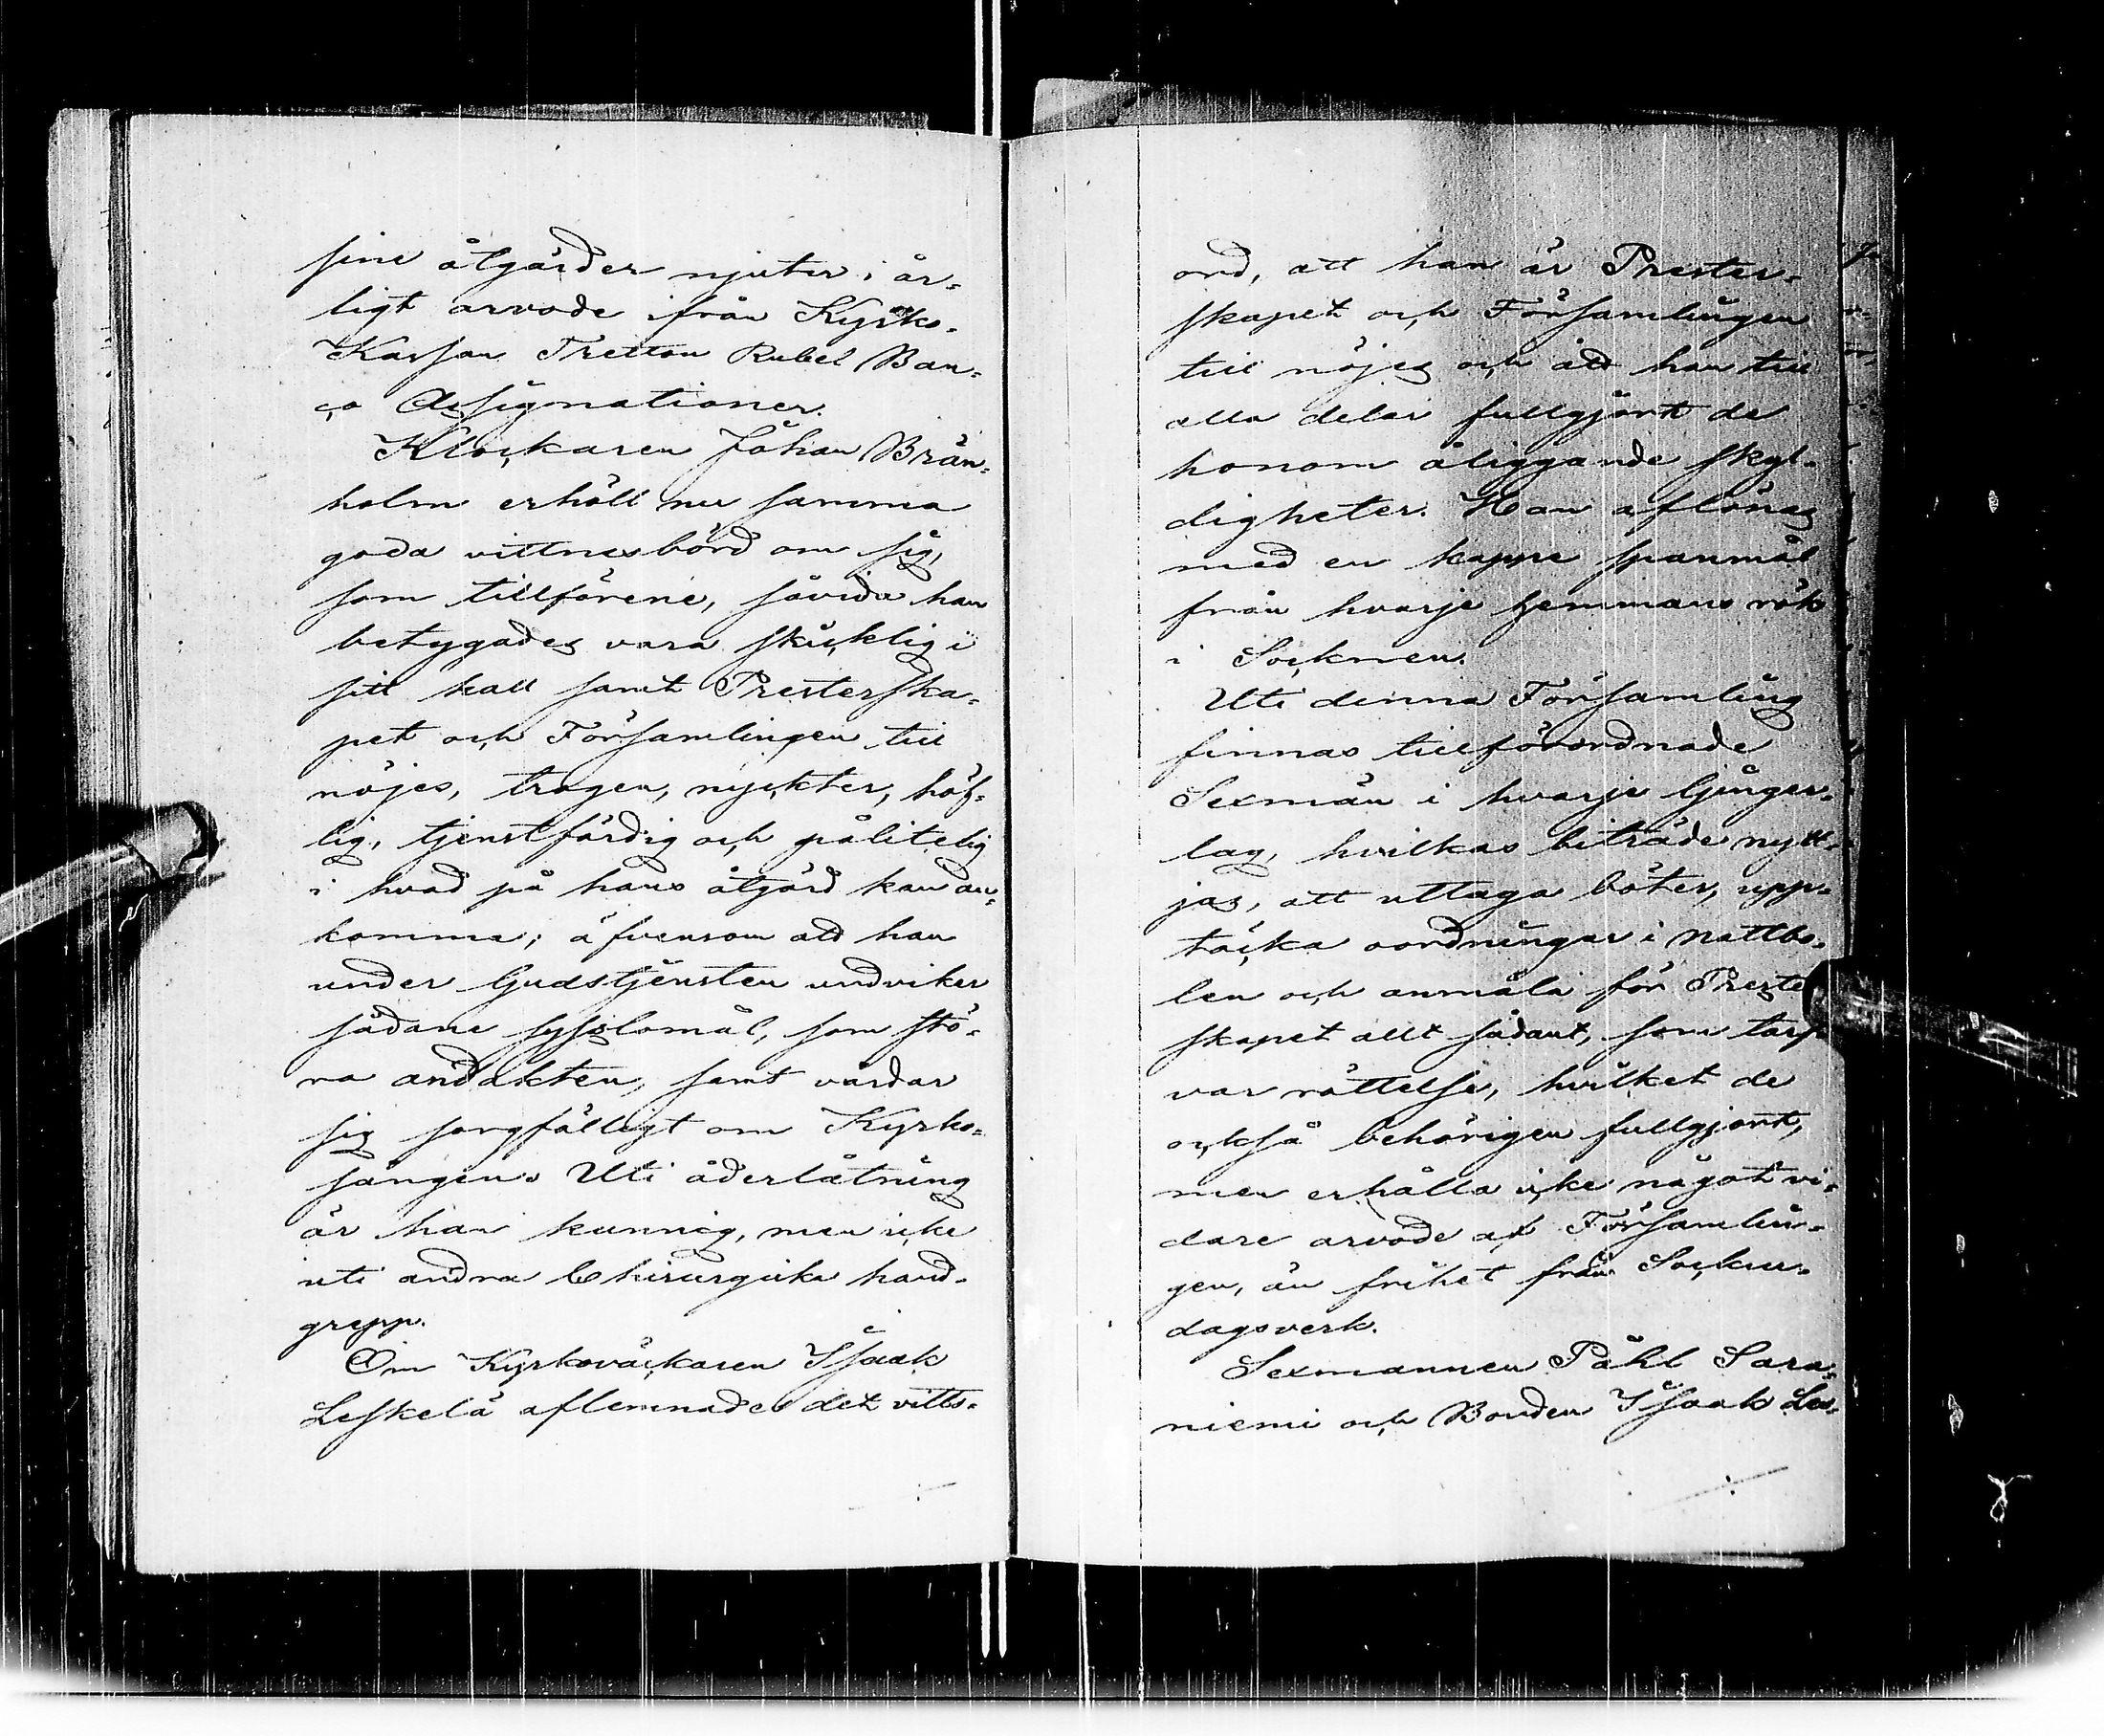 sine åtgärder njuter i år=
ligt arvode ifrån Kyrko=
Kassan Tretton Rubel Ban=
co Assignationer.
Klockaren Johan Brän=
holm erhöll nu samma
goda vittnesbörd om sig,
som tillförene, såvida han
betygades vara skicklig i
sitt kall samt Presterska=
pet och Församlingen till
nöjes, trogen, nyckter, höf=
lig, tjenstfärdig och pålitelig
i hvad på hans åtgärd kan an=
komma; äfvensom att han
under Gudstjensten undviker
sådane sysslomål, som stö=
ra andakten, samt vårdar
sig sorgfälligt om Kyrko=
sången. Uti åderlåtning
är han kunnig, men icke
uti andra Chirurgiska hand=
grepp.
Om Kyrkoväckaren Isaak
Leskelä aflemnades det vitts=
ord, att han är Prester=
skapet och Församlingen
till nöjes och att han till
alla delar fullgjort de
honom åliggande skyl=
digheter. Han aflönas
med en kappe spanmål
från hvarje hemmans rök
i Socknen.
Uti denna Församling
finnas tillförordnade
Sexmän i hvarje Gjinger=
lag, hvilkas biträde nytt=
jas, att uttaga böter, upp=
täcka oordningar i nattbo=
len och anmäla för Preste
skapet allt sådant, som tarf
var rättelse, hvilket de
också behörigen fullgjort,
men erhålla icke något vi=
dare arvode af Församlin=
gen, än frihet från Socken=
dagsverk.
Sexmannen Påhl Sara=
niemi och Bonden Isaak Les=